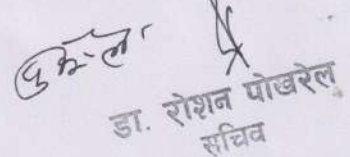 डा. रोशन पोखरेल
सचिव